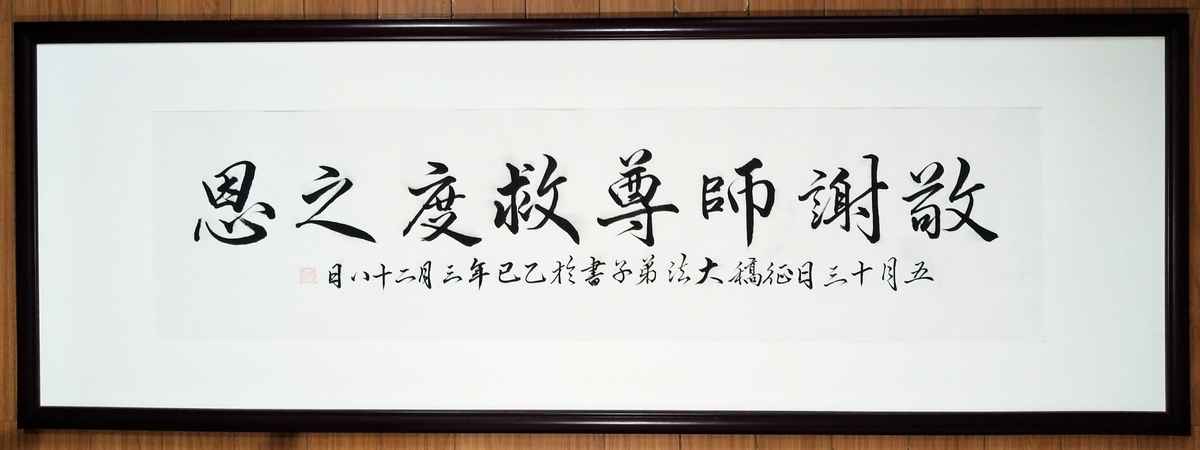 敬謝師尊救度之恩
五月十三日征稿大法弟子書於乙巳年三月二十八日